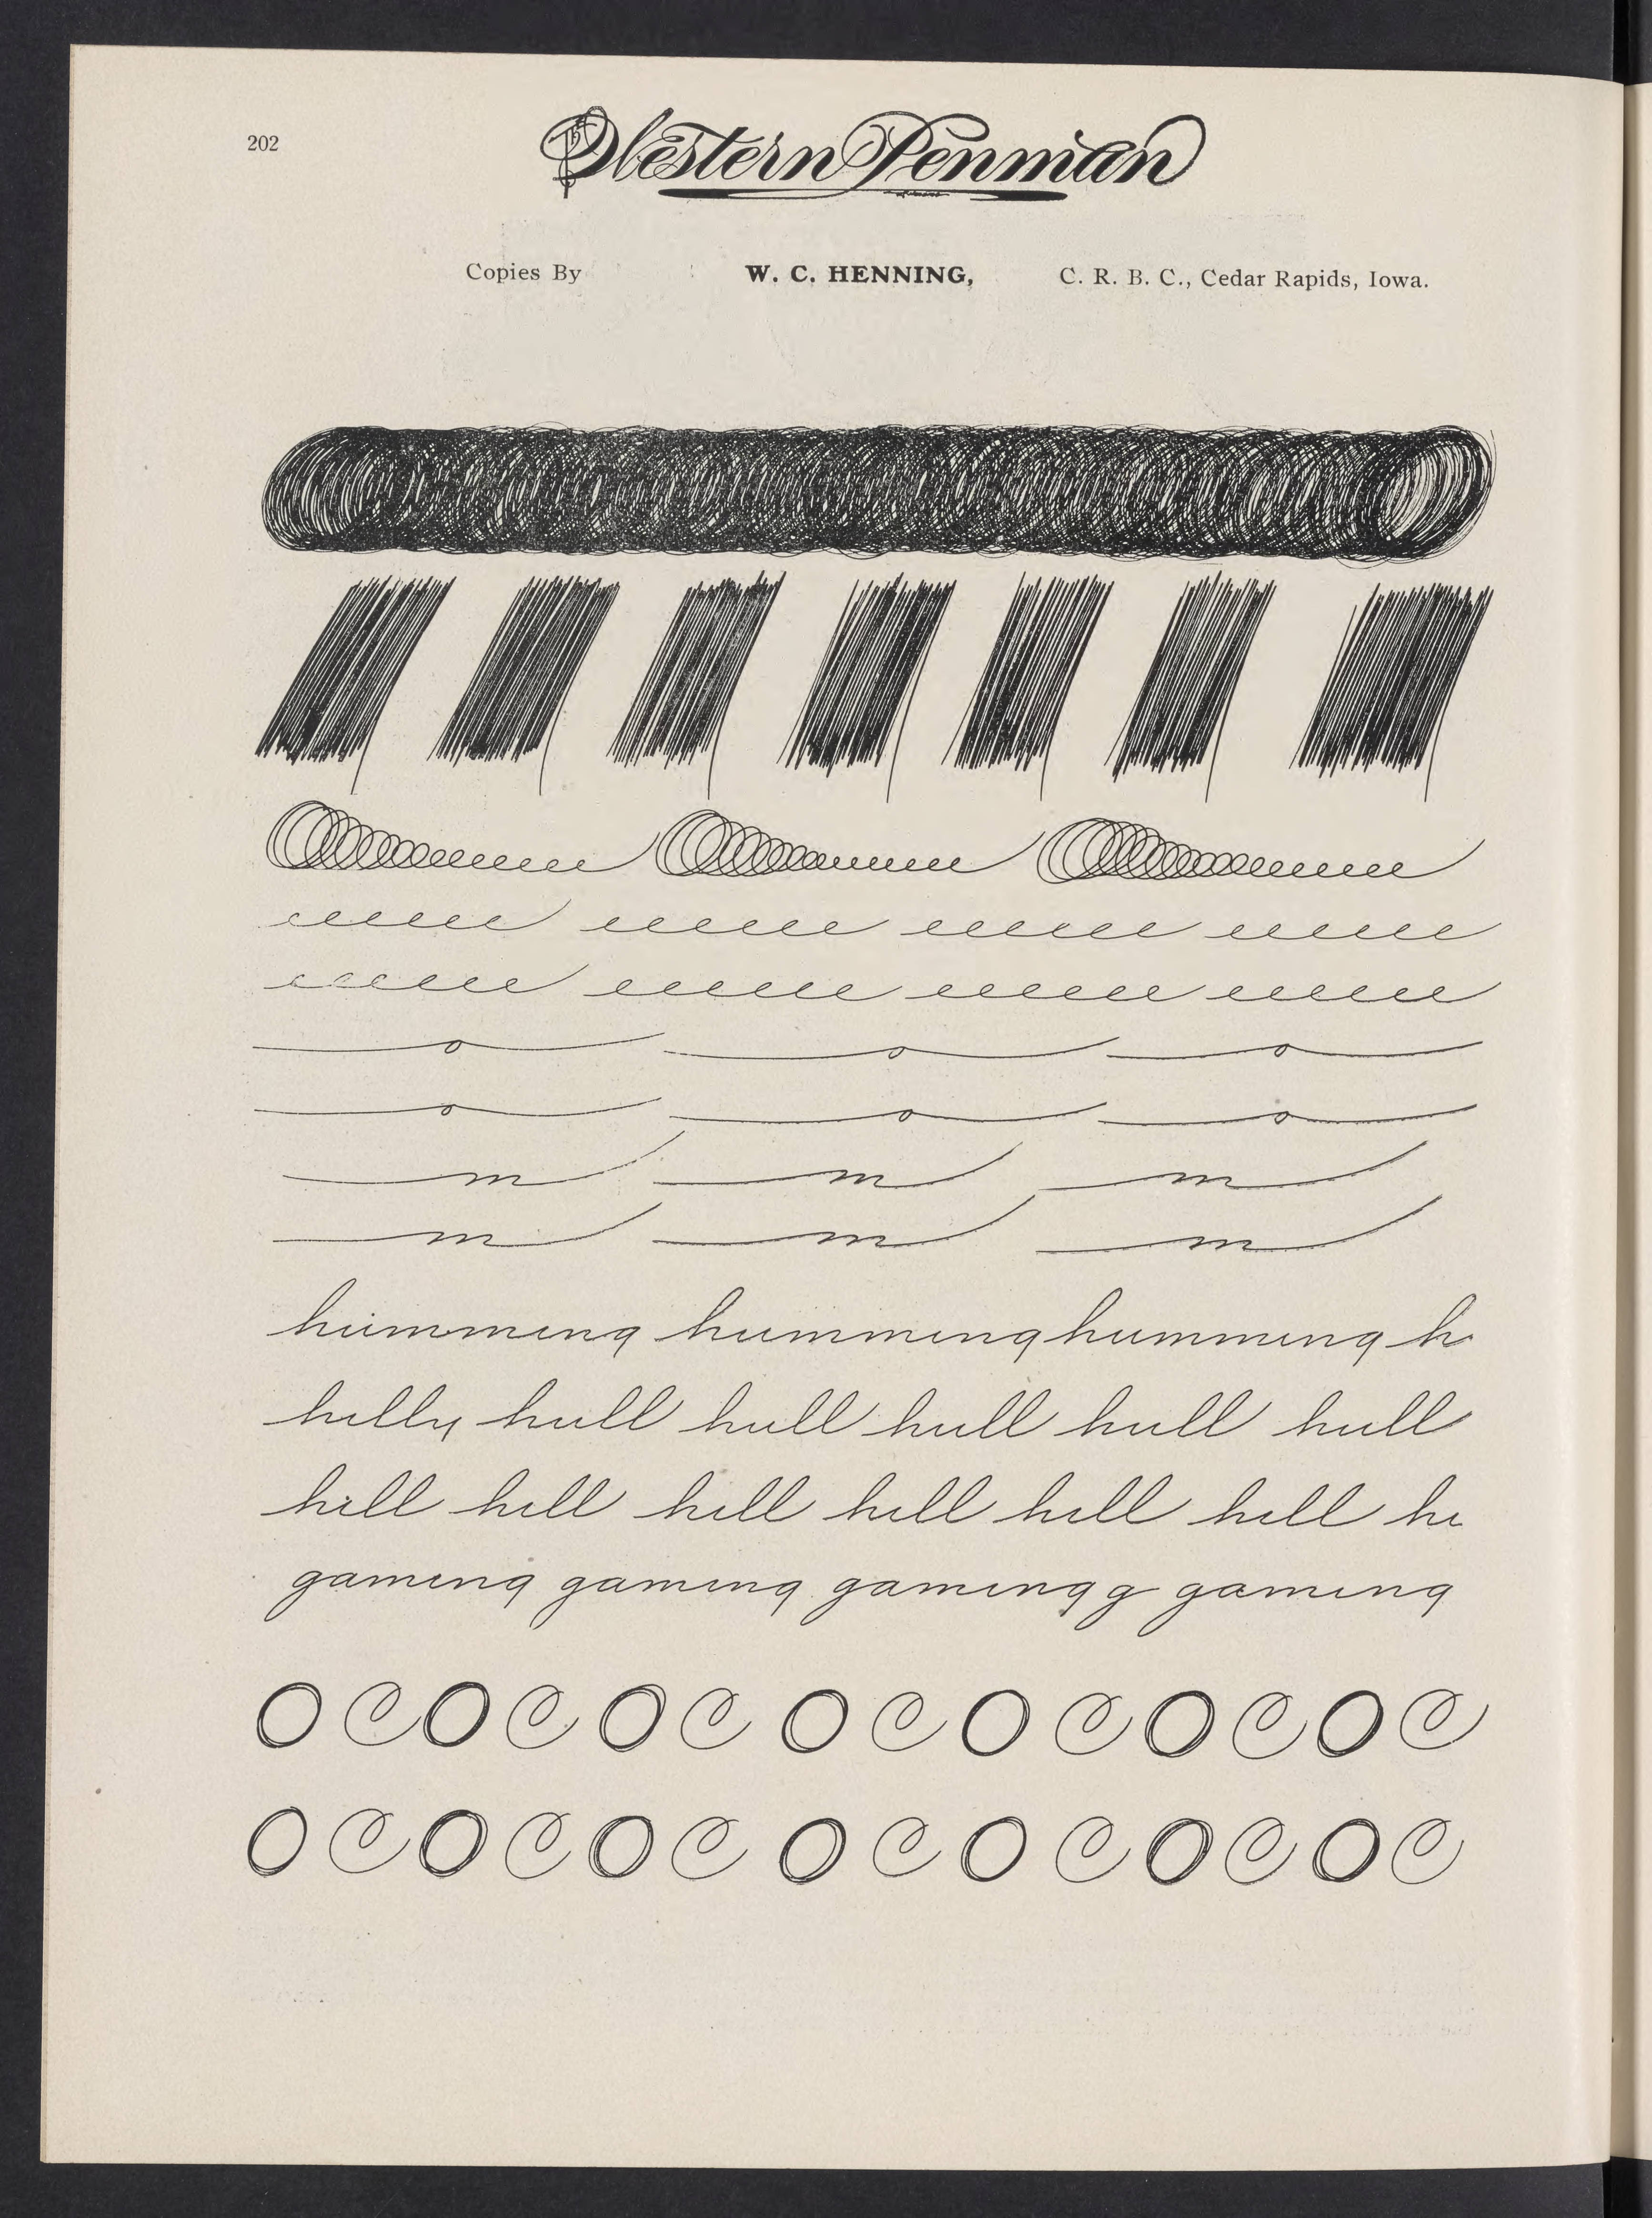 202
The Western Penman
Copies By W. C. HENNING, C. R. B. C., Cedar Rapids, Iowa.
eeeeee eeeeee eeeeee eeeeee
eeeeee eeeeee eeeeee eeeeee
o o o
o o o
m m m
m m m
humming humming humming h
hilly hull hull hull hull hull
hill hill hill hill hill hill hi
gaming gaming gaming g gaming
O C O C O C O C O C O C O C
O C O C O C O C O C O C O C